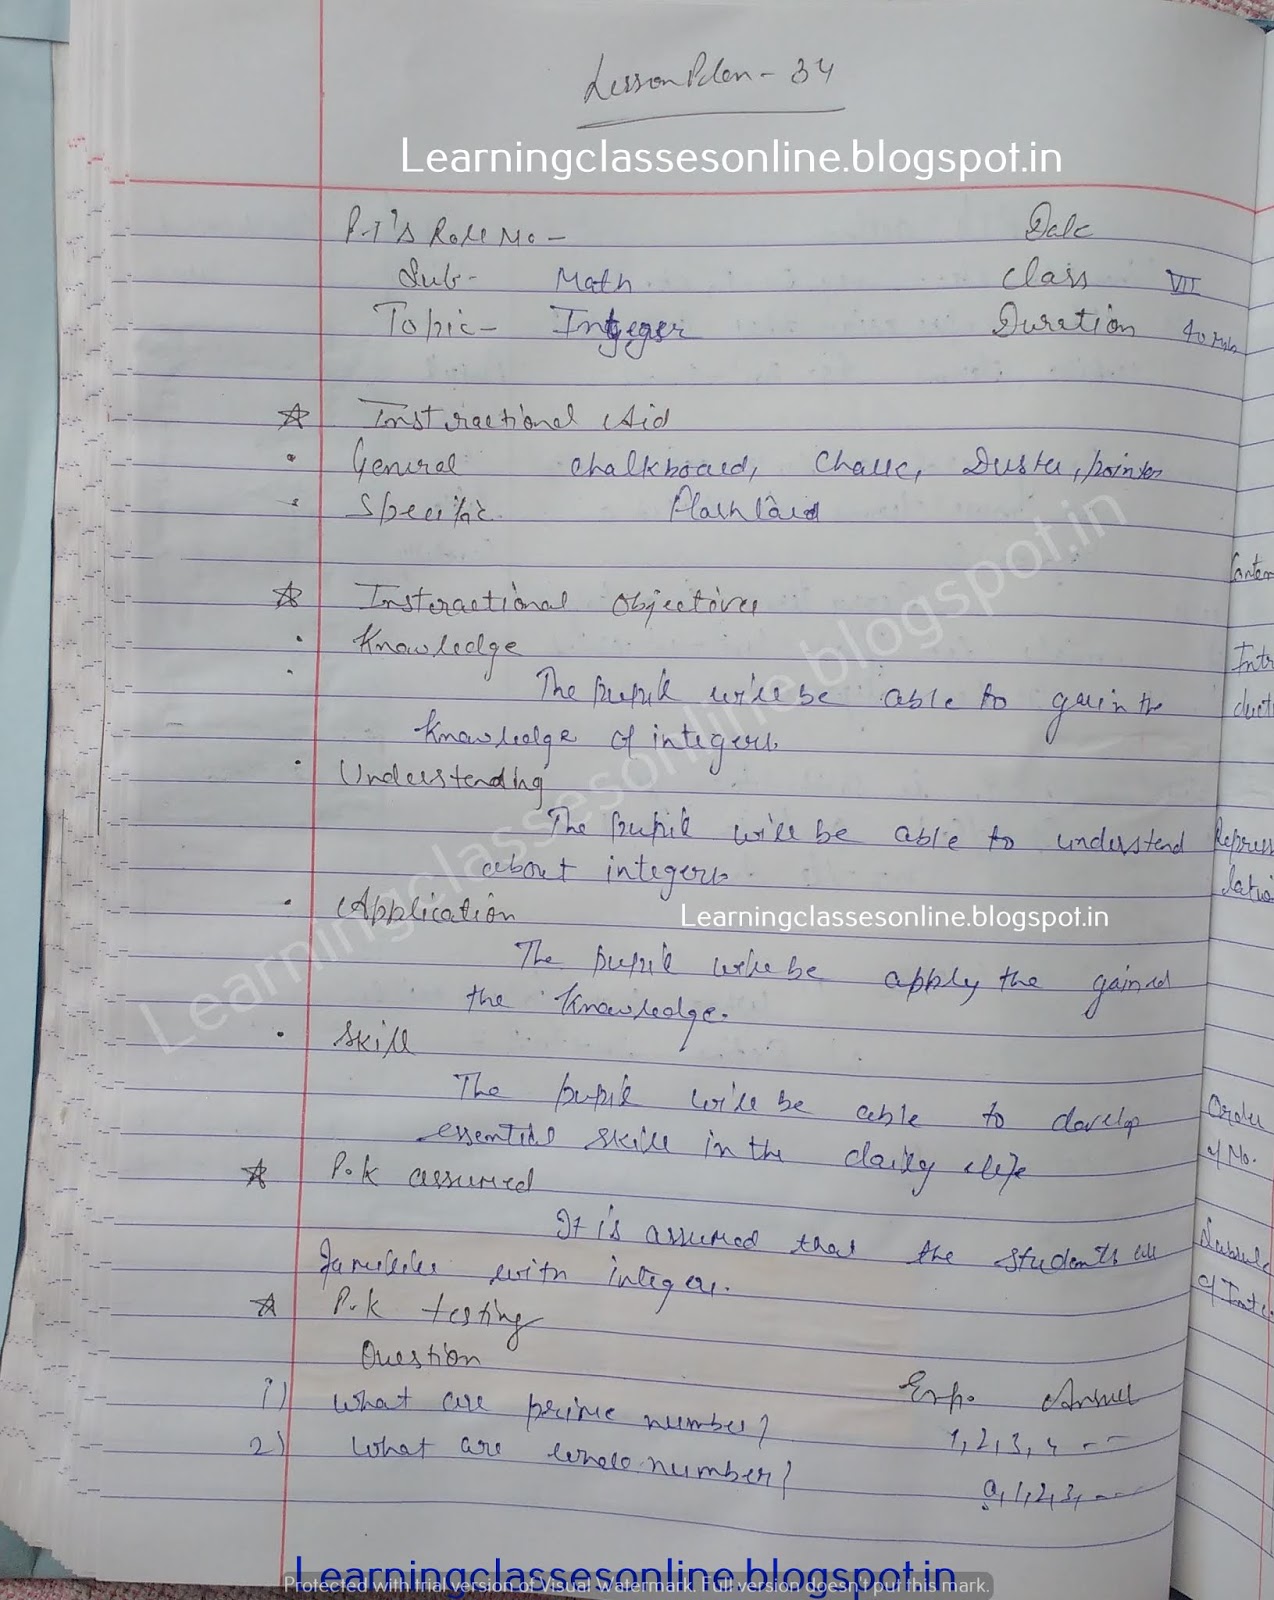 Lesson Plan - 34
Learningclassesonline.blogspot.in
P-T's Roll No - Date
Sub- Math Class VII
Topic- Integer Duration 40 Min
Instructional Aid
General chalkboard, chalk, Duster, pointer
Specific Flash Card
Instructional Objectives
Knowledge
The pupil will be able to gain the
knowledge of integers.
Understanding
The pupil will be able to understand
about integers.
Application
Learningclassesonline.blogspot.in
The pupil will be apply the gained
the knowledge.
Skill
The pupil will be able to develop
essential skill in the daily life
P.K assumed
It is assumed that the students are
familiar with integers.
P.K testing
Question Exp. Answer
1) What are prime number? 1, 2, 3, 4 --
2) What are whole number? 0, 1, 2, 3, ---
Learningclassesonline.blogspot.in
Protected with trial version of Visual Watermark. Full version doesn't put this mark.
Learningclassesonline.blogspot.in
Conten
Intr
duct
Repres
tatio
Order
of No.
of Inte